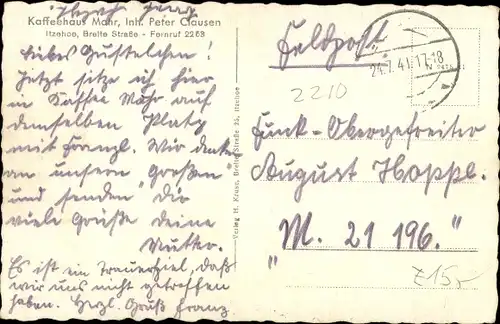 Kaffeehaus Mohr, Inh. Peter Clausen
Itzehoe, Breite Straße - Fernruf 2263
Liebes Gustelchen!
Jetzt sitze ich hier
in Kaffee Mohr auf
demselben Platz
mit Franzl. Wir denken
an unsern "Großen
und senden Dir
viele Grüße deine
Mutter.
Es ist ein Trauerspiel, daß
wir uns nicht getroffen
haben. Herzl. Gruß Franz.
Verlag H. Kruse, Breite Straße 35, Itzehoe
Feldpost!
24.7.41.17-18
2210
Funk-Obergefreiter
August Hoppl.
"M. 21 196."
Z15,-